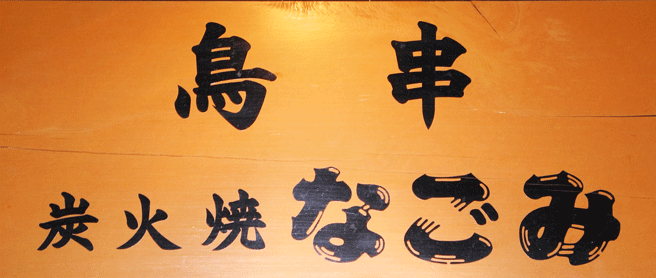 鳥串
炭火焼なごみ